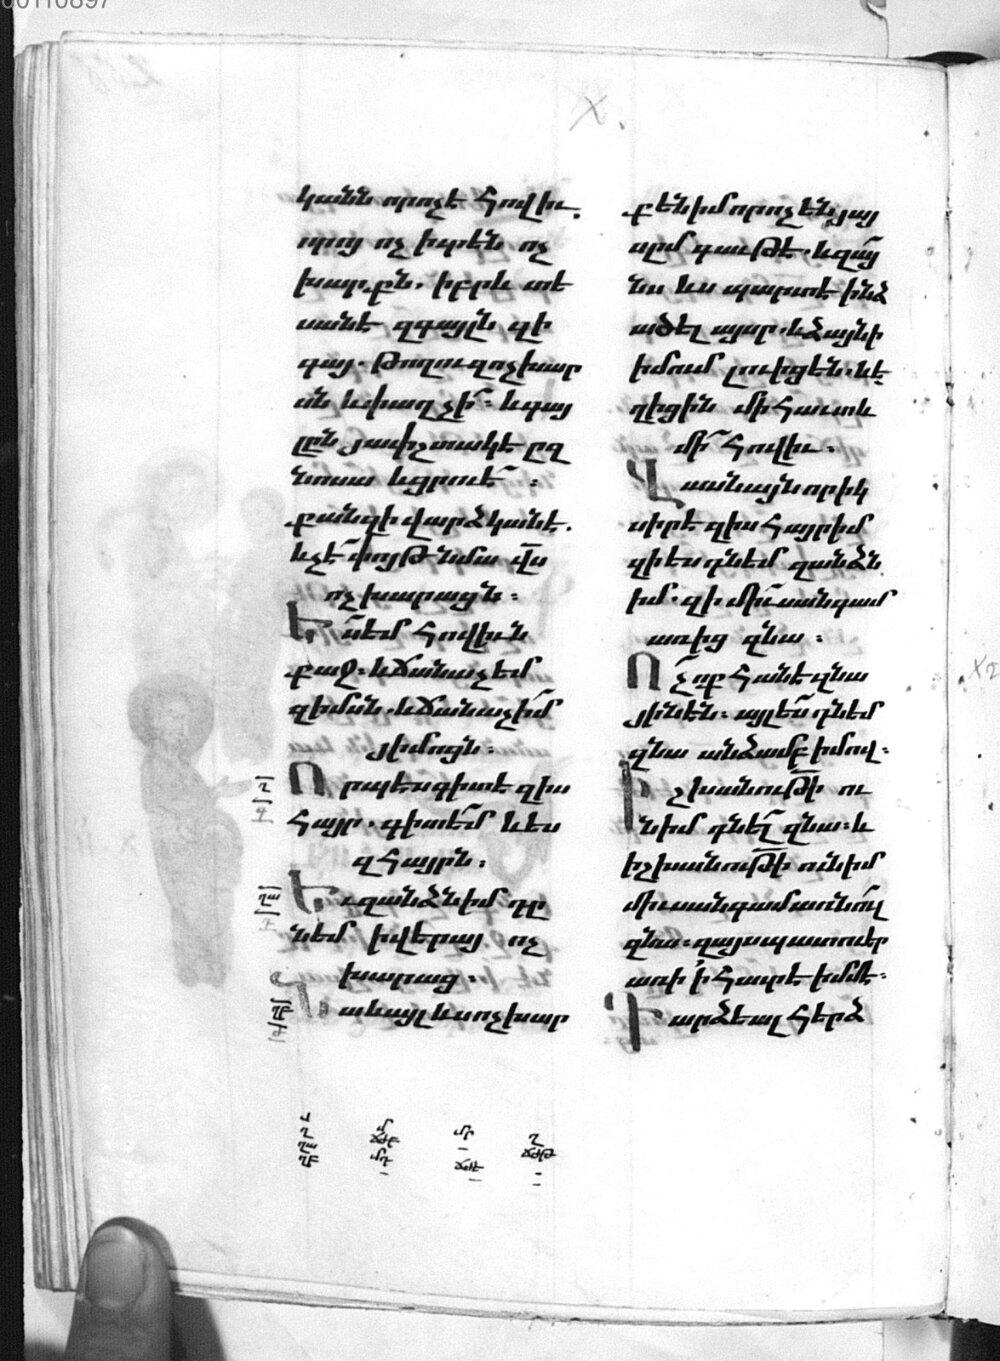 կանն որոչէ հովիւ.
որոյ ոչ իւրեն ոչ
խարքն. իբրև տե
սանե զգայլն զի
գայ. թողու զոչխար
սն և փախչի՝. և գայ
լըն յափշտակե ըզ
նոսա և ցրուե՝.
քանզի վարձկանե.
և չէ փոյթ նմա վս
ոչխարացն.
Ես եմ հովիւն
քաջ. և ճանաչեմ
զիմսն. և ճանաչիմ
յիմոցն.
Որպես գիտե զիս
հայր. գիտեմ և ես
զհայրն.
Եւ զանձն իմ դը
նեմ ի վերայ ոչ
խարաց.
Եւ այլ ևս ոչխար
ք են իմ որոչ են յայ
սըմ գաւթե. և զայ
նս ևս պարտէ ինձ
ածել այսր. և ձայնի
իմում լուիցեն. և ե
ղիցին մի հաւտ և
մի հովիւ.
Վասն այնորիկ
սիրե զիս հայր իմ
զի ես դնեմ զանձն
իմ. զի միւսանգամ
առից զնա.
Ոչ ոք հանե զնա
յինեն. այլ ես դնեմ
զնա անձամբ իմով.
Իշխանութի ու
նիմ դնել զնա. և
իշխանութի ունիմ
միւսանգամ առնուլ
զնա. զայս պատուէր
առի ի հաւրէ իմմե.
Դարձեալ հերձ